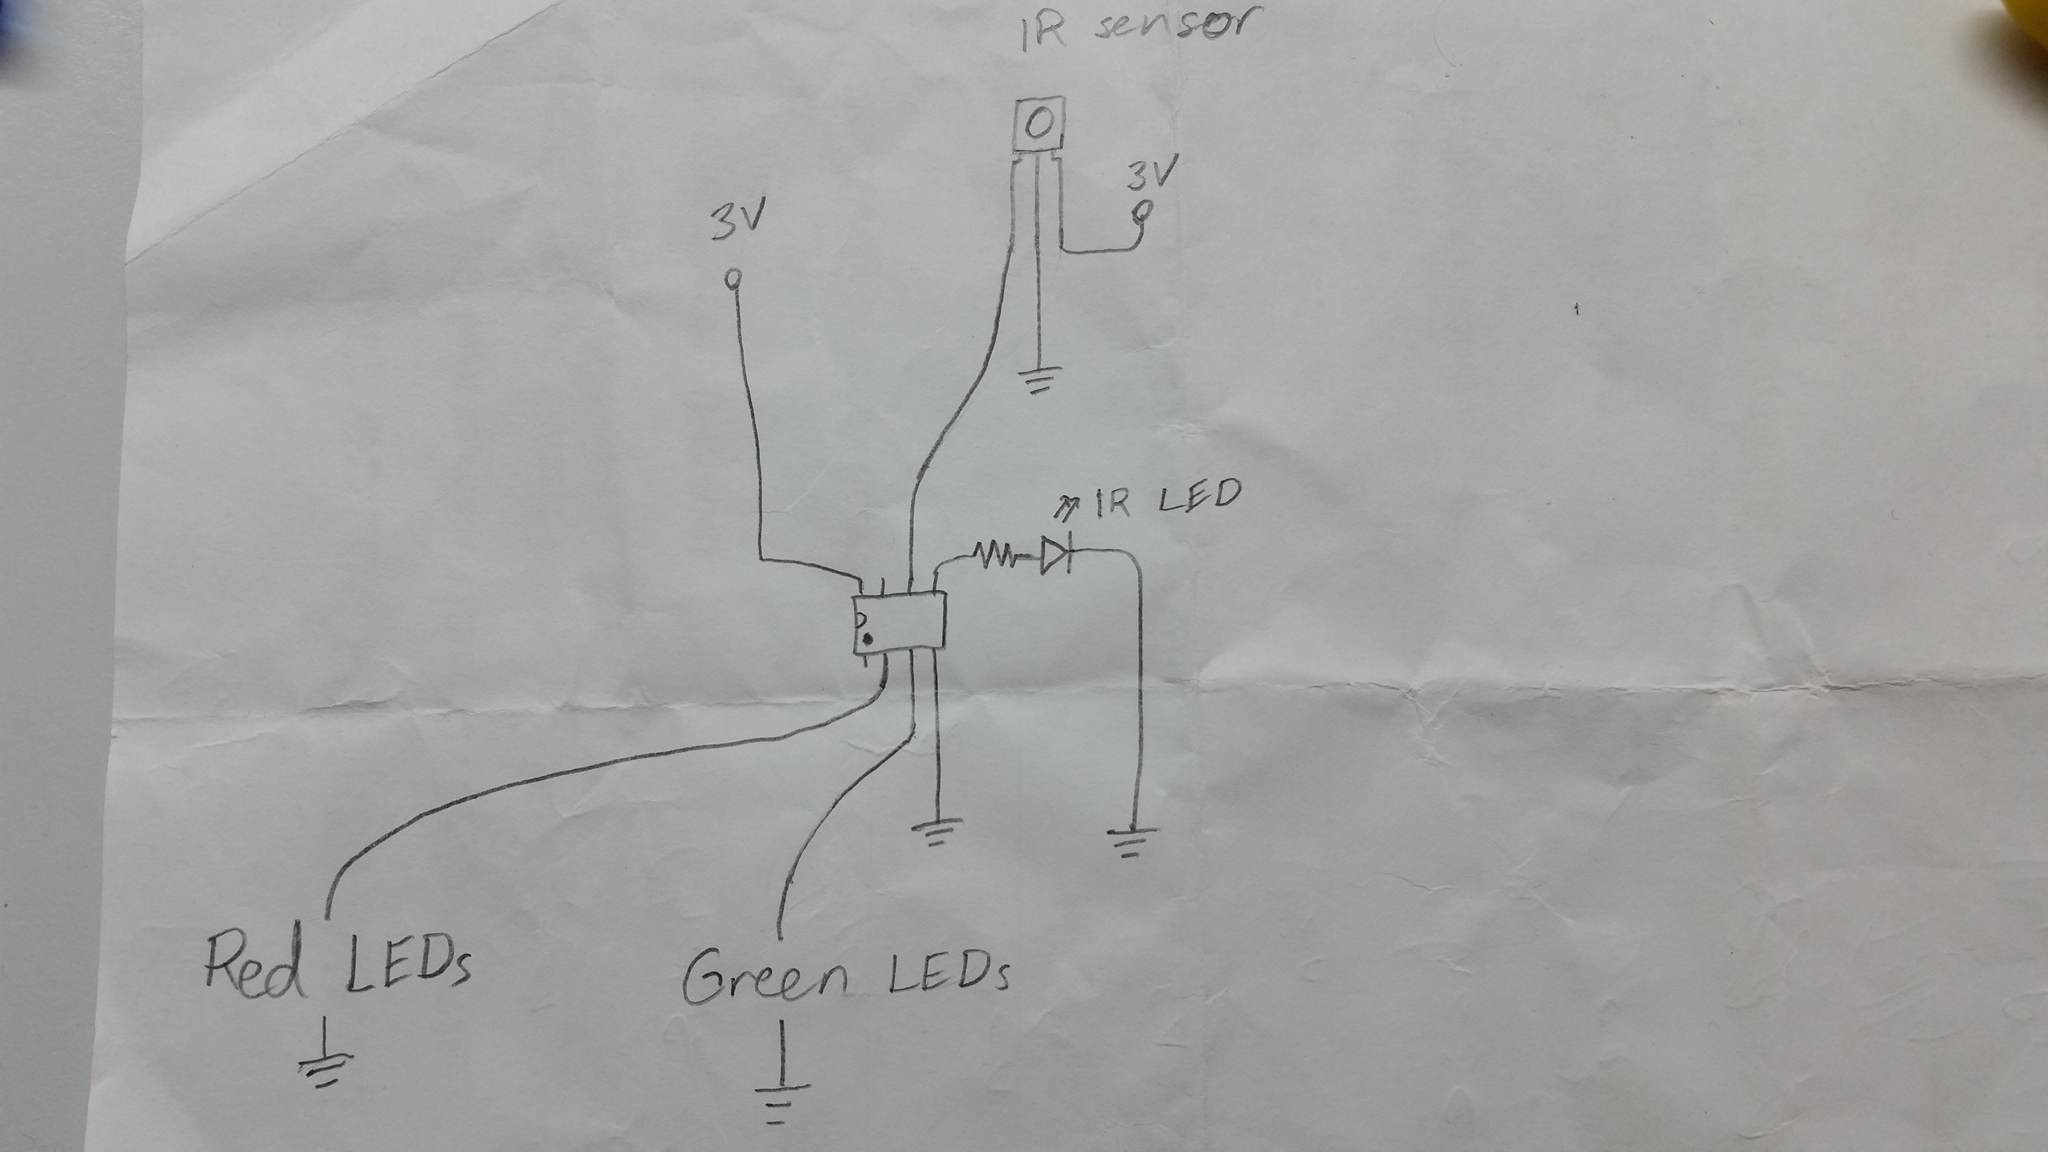 IR sensor
3V
3V
IR LED
Red LEDs
Green LEDs